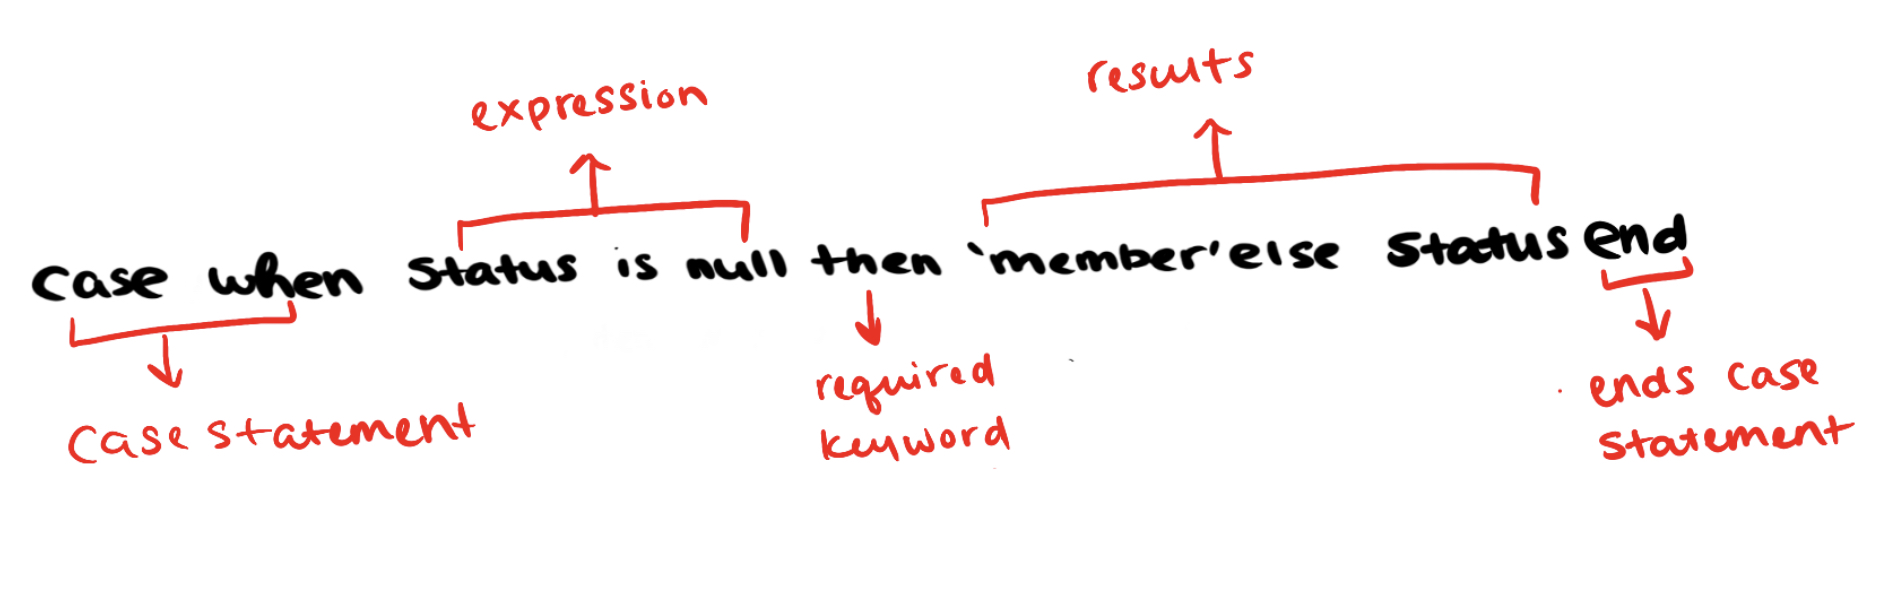 expression
results
case when status is null then 'member' else status end
case statement
required
keyword
ends case
statement